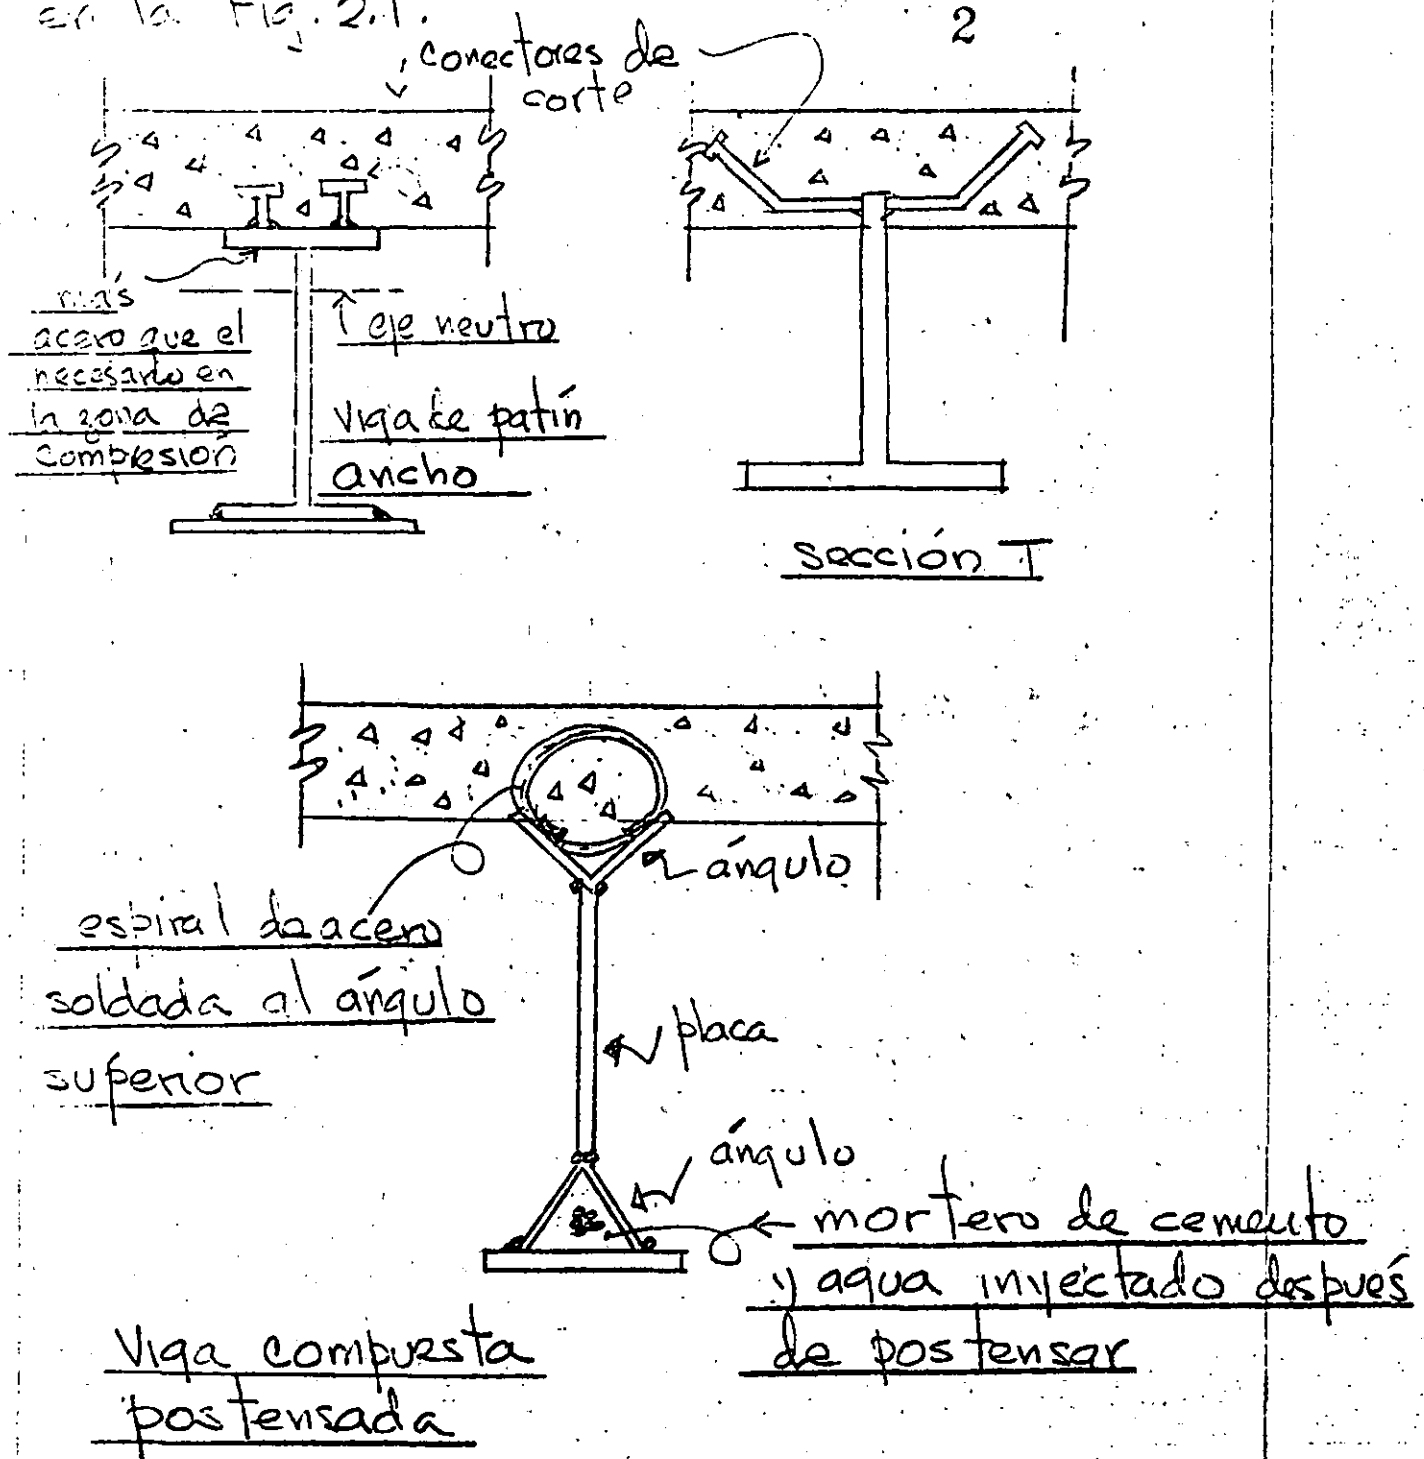 en la Fig. 2.1.
2
conectores de
corte
más
acero que el
necesario en
la zona de
compresión
eje neutro
viga de patín
ancho
sección T
ángulo
espiral de acero
soldada al ángulo
superior
placa
ángulo
mortero de cemento
y agua inyectado después
de postensar
Viga compuesta
postensada